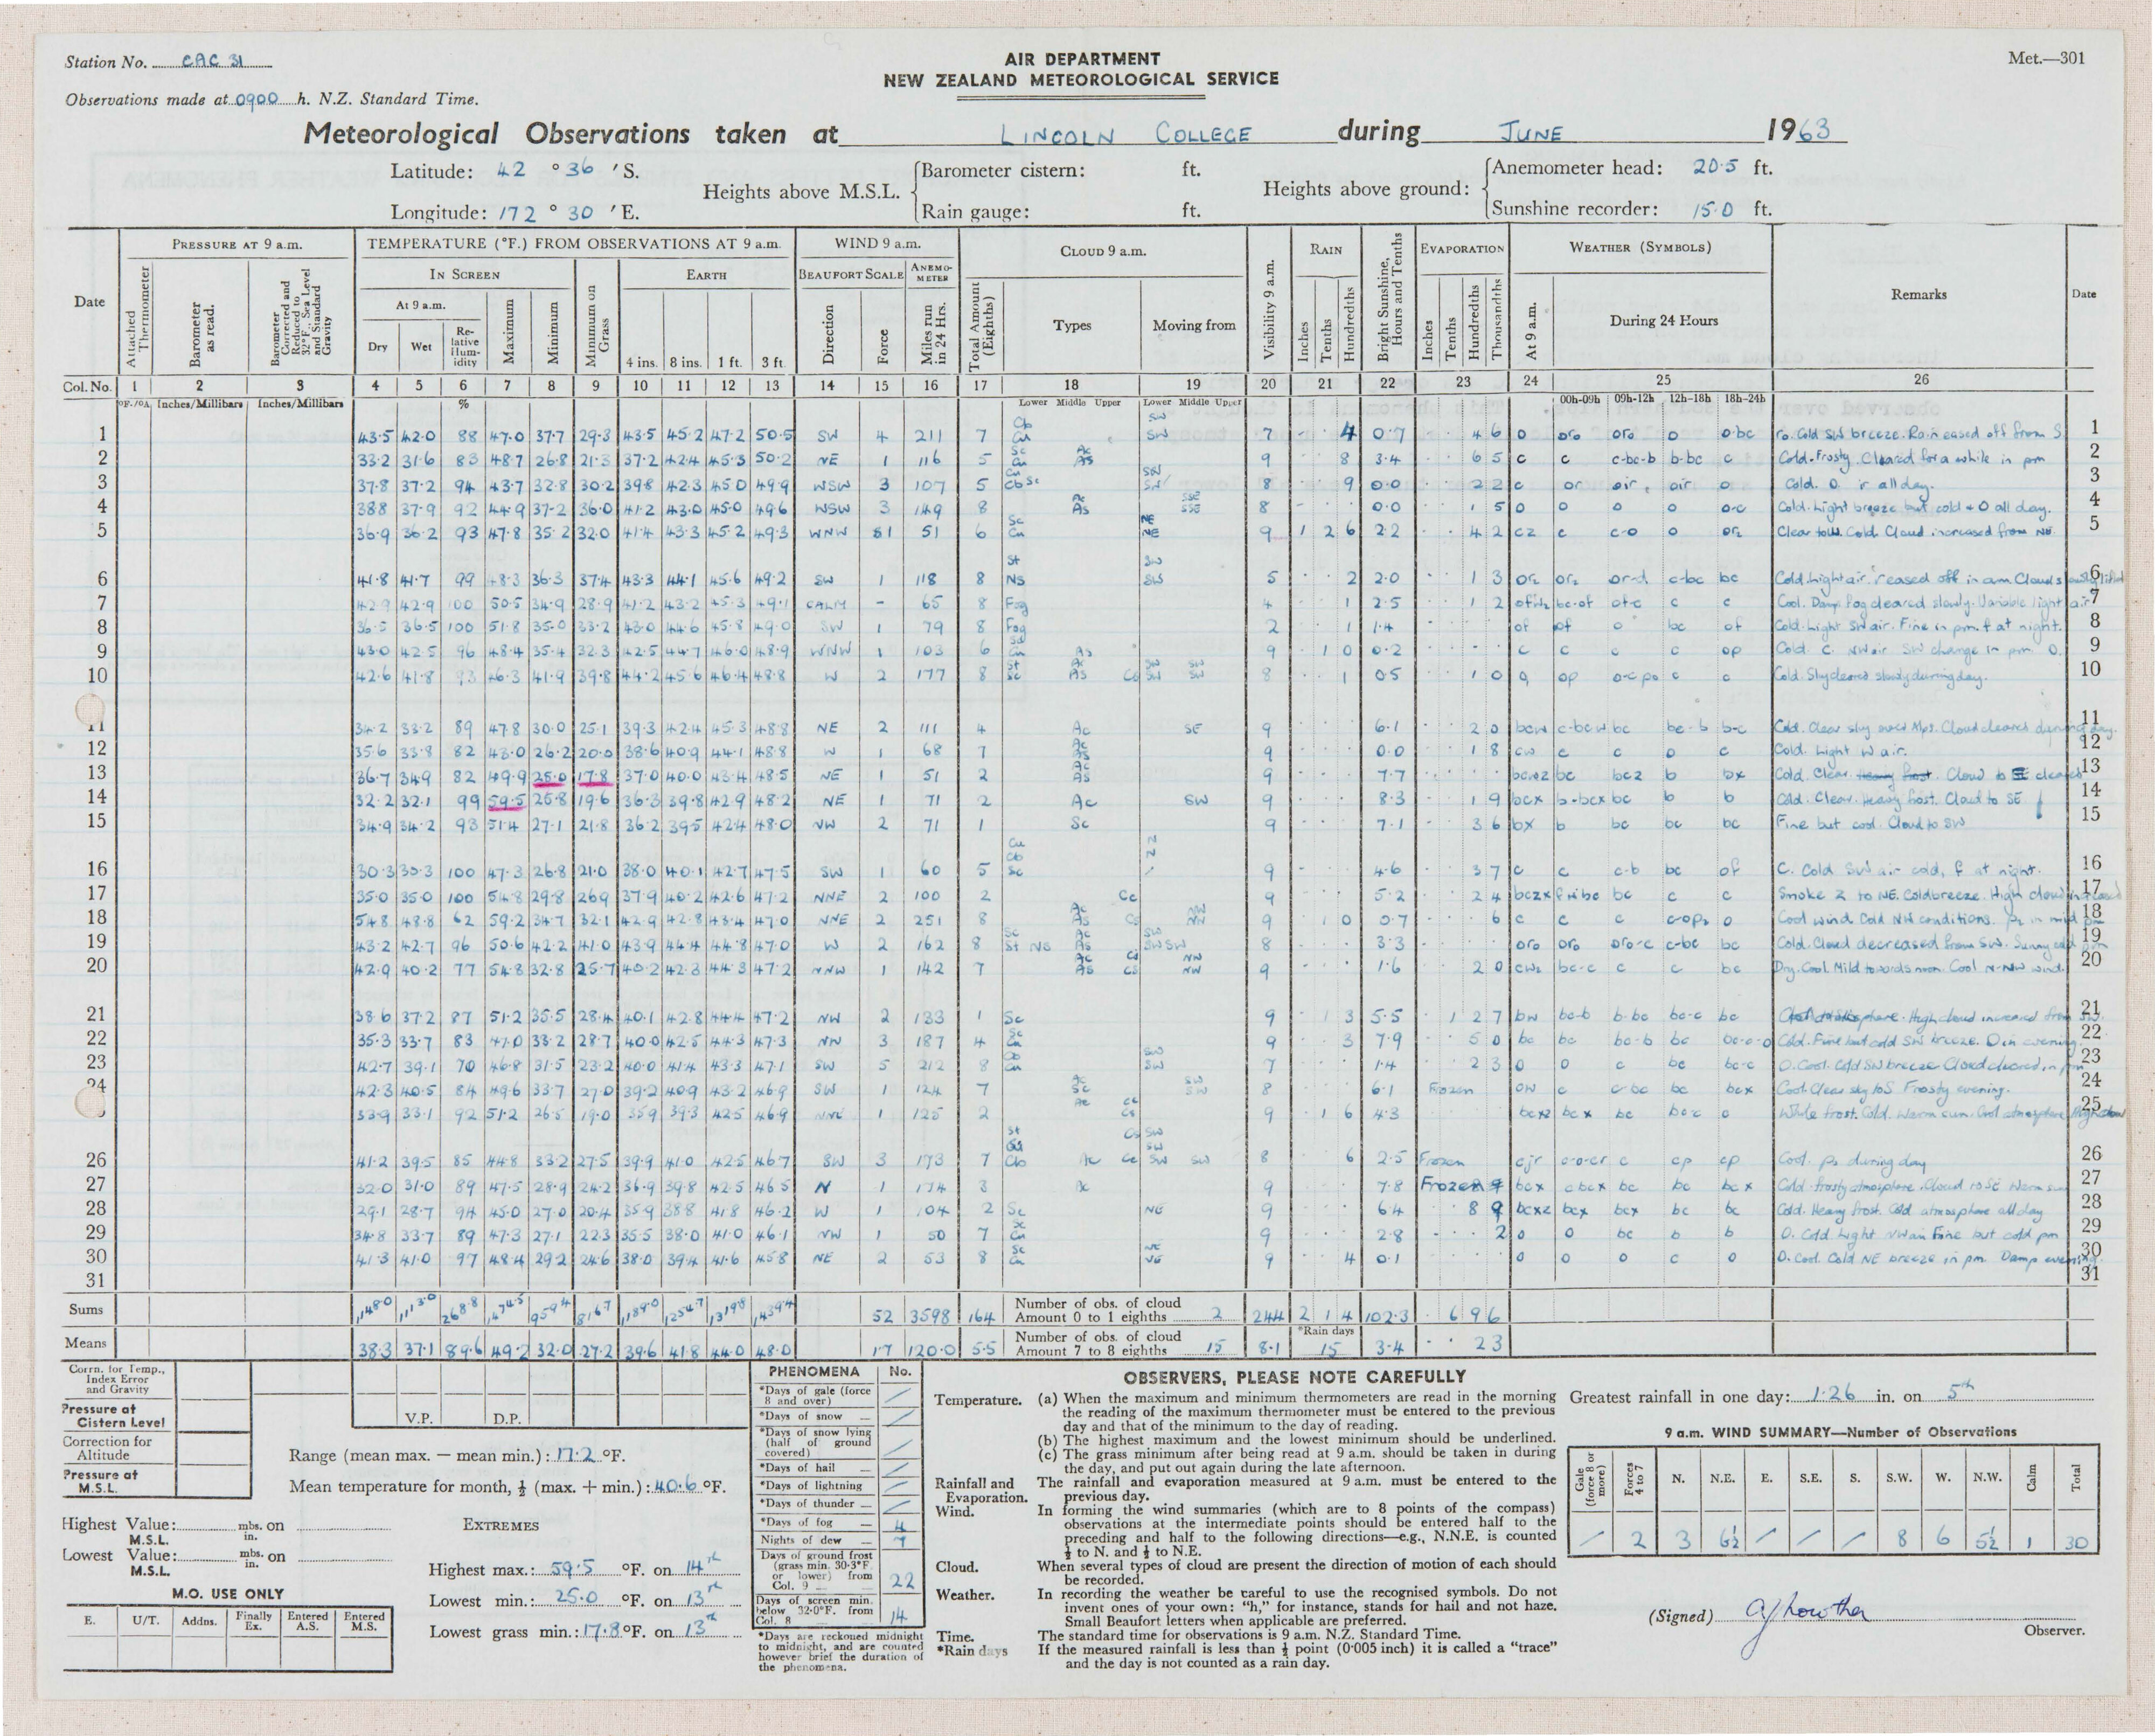 Station No. CAC 31
AIR DEPARTMENT
Met.—301
NEW ZEALAND METEOROLOGICAL SERVICE
Observations made at 0900 h. N.Z. Standard Time.
Meteorological Observations taken at LINCOLN COLLEGE during JUNE 1963
Latitude: 42 ° 36 ' S.
Longitude: 172 ° 30 ' E.
Heights above M.S.L.
Barometer cistern: ft.
Rain gauge: ft.
Heights above ground:
Anemometer head: 20.5 ft.
Sunshine recorder: 15.0 ft.
Date
PRESSURE AT 9 a.m.
Attached Thermometer
Barometer as read.
Barometer Corrected and Reduced to 32°F., Sea Level and Standard Gravity
TEMPERATURE (°F.) FROM OBSERVATIONS AT 9 a.m.
IN SCREEN
At 9 a.m.
Dry Wet Relative Humidity Maximum Minimum
Minimum on Grass
EARTH
4 ins. 8 ins. 1 ft. 3 ft.
WIND 9 a.m.
BEAUFORT SCALE ANEMOMETER
Direction Force Miles run in 24 Hrs.
CLOUD 9 a.m.
Total Amount (Eighths) Types Moving from
Visibility 9 a.m.
RAIN
Inches Tenths Hundredths
Bright Sunshine, Hours and Tenths
EVAPORATION
Inches Tenths Hundredths Thousandths
WEATHER (SYMBOLS)
At 9 a.m. During 24 Hours
Remarks
Date
Col. No. 1 2 3 4 5 6 7 8 9 10 11 12 13 14 15 16 17 18 19 20 21 22 23 24 25 26
°F./°A. Inches/Millibars Inches/Millibars % Lower Middle Upper Lower Middle Upper 00h-09h 09h-12h 12h-18h 18h-24h
1 43.5 42.0 88 47.0 37.7 29.3 43.5 45.2 47.2 50.5 SW 4 211 7 Cb Cu SW SW 7 4 0.7 4 6 o oro oro o o.bc ro. Cold SW breeze. Rain eased off from S. 1
2 33.2 31.6 83 48.7 26.8 21.3 37.2 42.4 45.3 50.2 NE 1 116 5 Sc Cu Ac As 9 8 3.4 6 5 c c c-bc-b b-bc c Cold. Frosty. Cleared for a while in pm 2
3 37.8 37.2 94 43.7 32.8 30.2 39.8 42.3 45.0 49.9 WSW 3 107 5 Cu Cb Sc SW SW 8 9 0.0 2 2 c or oir, oir o Cold. O ir all day. 3
4 38.8 37.9 92 44.9 37.2 36.0 41.2 43.0 45.0 49.6 WSW 3 149 8 Ac As SSE SSE 8 0.0 1 5 o o o o o-c Cold. Light breeze but cold + O all day. 4
5 36.9 36.2 93 47.8 35.2 32.0 41.4 43.3 45.2 49.3 WNW 1 51 6 Sc Cu NE NE 9 1 2 6 2.2 4 2 cz c c-o o Clear to W. Cold. Cloud increased from NE. 5
6 41.8 41.7 99 48.3 36.3 37.4 43.3 44.1 45.6 49.2 SW 1 118 8 St Ns SW SW 5 2 2.0 1 3 or-d c-bc bc Cold. Light air. r eased off in am 6
7 42.9 42.9 100 50.5 34.9 28.9 41.2 43.2 45.3 49.1 CALM - 65 8 Fog 4 1 2.5 1 2 bc-of c c Cool. Damp. Fog cleared slowly. Variable light air 7
8 36.5 36.5 100 51.8 35.0 33.2 43.0 44.6 45.8 49.0 SW 1 79 8 Fog 2 1 1.4 of of o bc of Cold. Light SW air. Fine in pm. f at night. 8
9 43.0 42.5 96 48.4 35.4 32.3 42.5 44.7 46.0 48.9 WNW 1 103 6 Cu As 9 1 0 0.2 c c c c op Cold. C. NW air. SW change in pm O. 9
10 42.6 41.8 93 46.3 41.9 39.8 44.2 45.6 46.4 48.8 W 2 177 8 St Sc Ac As Cs SW SW SW SW 8 1 0.5 1 0 op c c Cold. Sky cleared slowly during day. 10
11 34.2 33.2 89 47.8 30.0 25.1 39.3 42.4 45.3 48.8 NE 2 111 4 Ac SE 9 6.1 2 0 bcw c-bcw bc bc-b b-c Cold. Clear sky over Alps. Cloud cleared during day. 11
12 35.6 33.8 82 43.0 26.2 20.0 38.6 40.9 44.1 48.8 W 1 68 7 Ac As 9 0.0 1 8 cw c c o c Cold. Light W air. 12
13 36.7 34.9 82 49.9 25.0 17.8 37.0 40.0 43.4 48.5 NE 1 51 2 Ac As 9 7.7 bcwz bc bcz b bx Cold. Clear. Heavy frost. Cloud to SE cleared 13
14 32.2 32.1 99 59.5 25.8 19.6 36.3 39.8 42.9 48.2 NE 1 71 2 Ac SW 9 8.3 1 9 bcx b-bcx bc b b Cold. Clear. Heavy frost. Cloud to SE. 14
15 34.9 34.2 93 51.4 27.1 21.8 36.2 39.5 42.4 48.0 NW 2 71 1 Sc 9 7.1 3 6 bx b bc bc bc Fine but cool. Cloud to SW 15
16 30.3 30.3 100 47.3 26.8 21.0 38.0 40.1 42.7 47.5 SW 1 60 5 Cu Cb Sc N N 9 4.6 3 7 c c c-b bc of C. Cold SW air cold, f at night. 16
17 35.0 35.0 100 54.8 29.8 26.9 37.9 40.2 42.6 47.2 NNE 2 100 2 Cc 9 5.2 2 4 bc c c Smoke Z to NE. Cold breeze. High cloud increased 17
18 54.8 48.8 62 59.2 34.7 32.1 42.9 42.8 43.4 47.0 NNE 2 251 8 Ac As Cs NW NW 9 1 0 0.7 6 c c c o Cool wind Cold NW conditions. 18
19 43.2 42.7 96 50.6 42.2 41.0 43.9 44.4 44.8 47.0 W 2 162 8 Sc St Ns Ac As SW SW SW 8 3.3 oro oro oro-c c-bc bc Cold. Cloud decreased from SW. Sunny cold pm 19
20 42.9 40.2 77 54.8 32.8 25.7 40.2 42.3 44.3 47.2 NNW 1 142 7 Ac As Cs NW NW 9 1.6 2 0 bc-c c c bc Dry. Cool. Mild towards noon. Cool N-NW wind. 20
21 38.6 37.2 87 51.2 35.5 28.4 40.1 42.8 44.4 47.2 NW 2 133 1 Sc 9 1 3 5.5 1 2 7 bw bc-b b-bc bc-c bc High cloud increased from SW. 21
22 35.3 33.7 83 47.0 33.2 28.7 40.0 42.5 44.3 47.3 NW 3 187 4 Sc Cu 9 3 7.9 5 0 bc bc bc-b bc bc-c-o Cold. Fine but cold SW breeze. O in evening. 22
23 42.7 39.1 70 46.8 31.5 23.2 40.0 41.4 43.3 47.1 SW 5 212 8 Cb Cu SW SW 7 1.4 2 3 o o c bc bc-c O. Cool. Cold SW breeze Cloud cleared in pm 23
24 42.3 40.5 84 49.6 33.7 27.0 39.2 40.9 43.2 46.9 SW 1 124 7 Ac Sc SW SW 8 6.1 Frozen ow c c-bc bc bcx Cool. Clear sky to S Frosty evening. 24
33.9 33.1 92 51.2 26.5 19.0 35.9 39.3 42.5 46.9 NNE 1 125 2 Ac Cc Cs 9 1 6 4.3 bcxz bcx bc bcc o White frost. Cold. Warm sun. Cool atmosphere High cloud 25
26 41.2 39.5 85 44.8 33.2 27.5 39.9 41.0 42.5 46.7 SW 3 173 7 St Cu Cb Ac Cs Cc SW SW SW SW 8 6 2.5 Frozen cjr c-o-cr c cp cp Cool. during day 26
27 32.0 31.0 89 47.5 28.9 24.2 36.9 39.8 42.5 46.5 N 1 174 3 Ac 9 7.8 Frozen bcx cbcx bc bc bcx Cold frosty atmosphere. Cloud to SE Warm sun 27
28 29.1 28.7 94 45.0 27.0 20.4 35.9 38.8 41.8 46.2 W 1 104 2 Sc NE 9 6.4 8 9 bcxz bcx bcx bc bc Cold. Heavy frost. Cold atmosphere all day 28
29 34.8 33.7 89 47.3 27.1 22.3 35.5 38.0 41.0 46.1 NW 1 50 7 Sc Cu 9 2.8 2 o o bc b b O. Cold Light NW air Fine but cold pm 29
30 41.3 41.0 97 48.4 29.2 24.6 38.0 39.4 41.6 45.8 NE 2 53 8 Sc Cu NE NE 9 4 0.1 o o o c o O. Cool. Cold NE breeze in pm. Damp evening. 30
31 31
Sums 1,148.0 1,113.0 2688 1,474.5 959.4 816.7 1,189.0 1254.7 1319.8 1,439.4 52 3598 164 Number of obs. of cloud Amount 0 to 1 eighths 2 244 2 1 4 102.3 6 9 6
Means 38.3 37.1 89.6 49.2 32.0 27.2 39.6 41.8 44.0 48.0 1.7 120.0 5.5 Number of obs. of cloud Amount 7 to 8 eighths 15 8.1 *Rain days 15 3.4 2 3
Corrn. for Temp., Index Error and Gravity
Pressure at Cistern Level
Correction for Altitude
Pressure at M.S.L.
V.P. D.P.
Range (mean max. — mean min.): 17.2 °F.
Mean temperature for month, ½ (max. + min.): 40.6 °F.
Highest Value: M.S.L. mbs. in. on
Lowest Value: M.S.L. mbs. in. on
EXTREMES
Highest max.: 59.5 °F. on 14th
Lowest min.: 25.0 °F. on 13th
Lowest grass min.: 17.8 °F. on 13th
M.O. USE ONLY
E. U/T. Addns. Finally Ex. Entered A.S. Entered M.S.
PHENOMENA No.
*Days of gale (force 8 and over) /
*Days of snow — /
*Days of snow lying (half of ground covered) /
*Days of hail — /
*Days of lightning /
*Days of thunder — /
*Days of fog — 4
Nights of dew — 7
Days of ground frost (grass min. 30·3°F. or lower) from Col. 9 — 22
Days of screen min. below 32·0°F. from Col. 8 14
*Days are reckoned midnight to midnight, and are counted however brief the duration of the phenomena.
OBSERVERS, PLEASE NOTE CAREFULLY
Temperature. (a) When the maximum and minimum thermometers are read in the morning
the reading of the maximum thermometer must be entered to the previous
day and that of the minimum to the day of reading.
(b) The highest maximum and the lowest minimum should be underlined.
(c) The grass minimum after being read at 9 a.m. should be taken in during
the day, and put out again during the late afternoon.
Rainfall and Evaporation. The rainfall and evaporation measured at 9 a.m. must be entered to the
previous day.
Wind. In forming the wind summaries (which are to 8 points of the compass)
observations at the intermediate points should be entered half to the
preceding and half to the following directions—e.g., N.N.E. is counted
½ to N. and ½ to N.E.
Cloud. When several types of cloud are present the direction of motion of each should
be recorded.
Weather. In recording the weather be careful to use the recognised symbols. Do not
invent ones of your own: "h," for instance, stands for hail and not haze.
Small Beaufort letters when applicable are preferred.
Time. The standard time for observations is 9 a.m. N.Z. Standard Time.
*Rain days If the measured rainfall is less than ½ point (0·005 inch) it is called a "trace"
and the day is not counted as a rain day.
Greatest rainfall in one day: 1.26 in. on 5th
9 a.m. WIND SUMMARY—Number of Observations
Gale (force 8 or more) Forces 4 to 7 N. N.E. E. S.E. S. S.W. W. N.W. Calm Total
/ 2 3 6½ / / / 8 6 5½ 1 30
(Signed)
Observer.